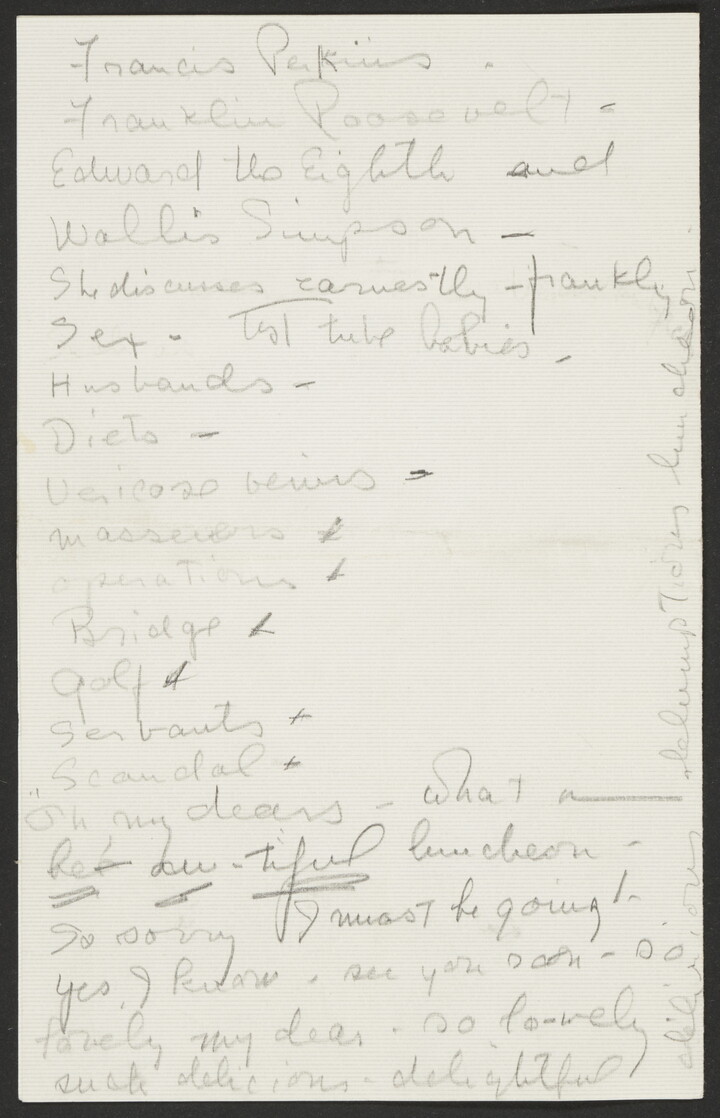 Francis Perkins .
Franklin Roosevelt -
Edward the Eighth and
Wallis Simpson -
She discusses earnestly - frankly
Sex - test tube babies -
Husbands -
Diets -
Vericose veins -
masseurs +
operations +
Bridge +
Golf +
Servants +
Scandal +
"Oh, my dears - what a
be au-tiful luncheon -
So sorry I must be going! -
yes, I know - see you soon - so
lovely my dear - so lo-vely
such delicious - delightful
luncheon.